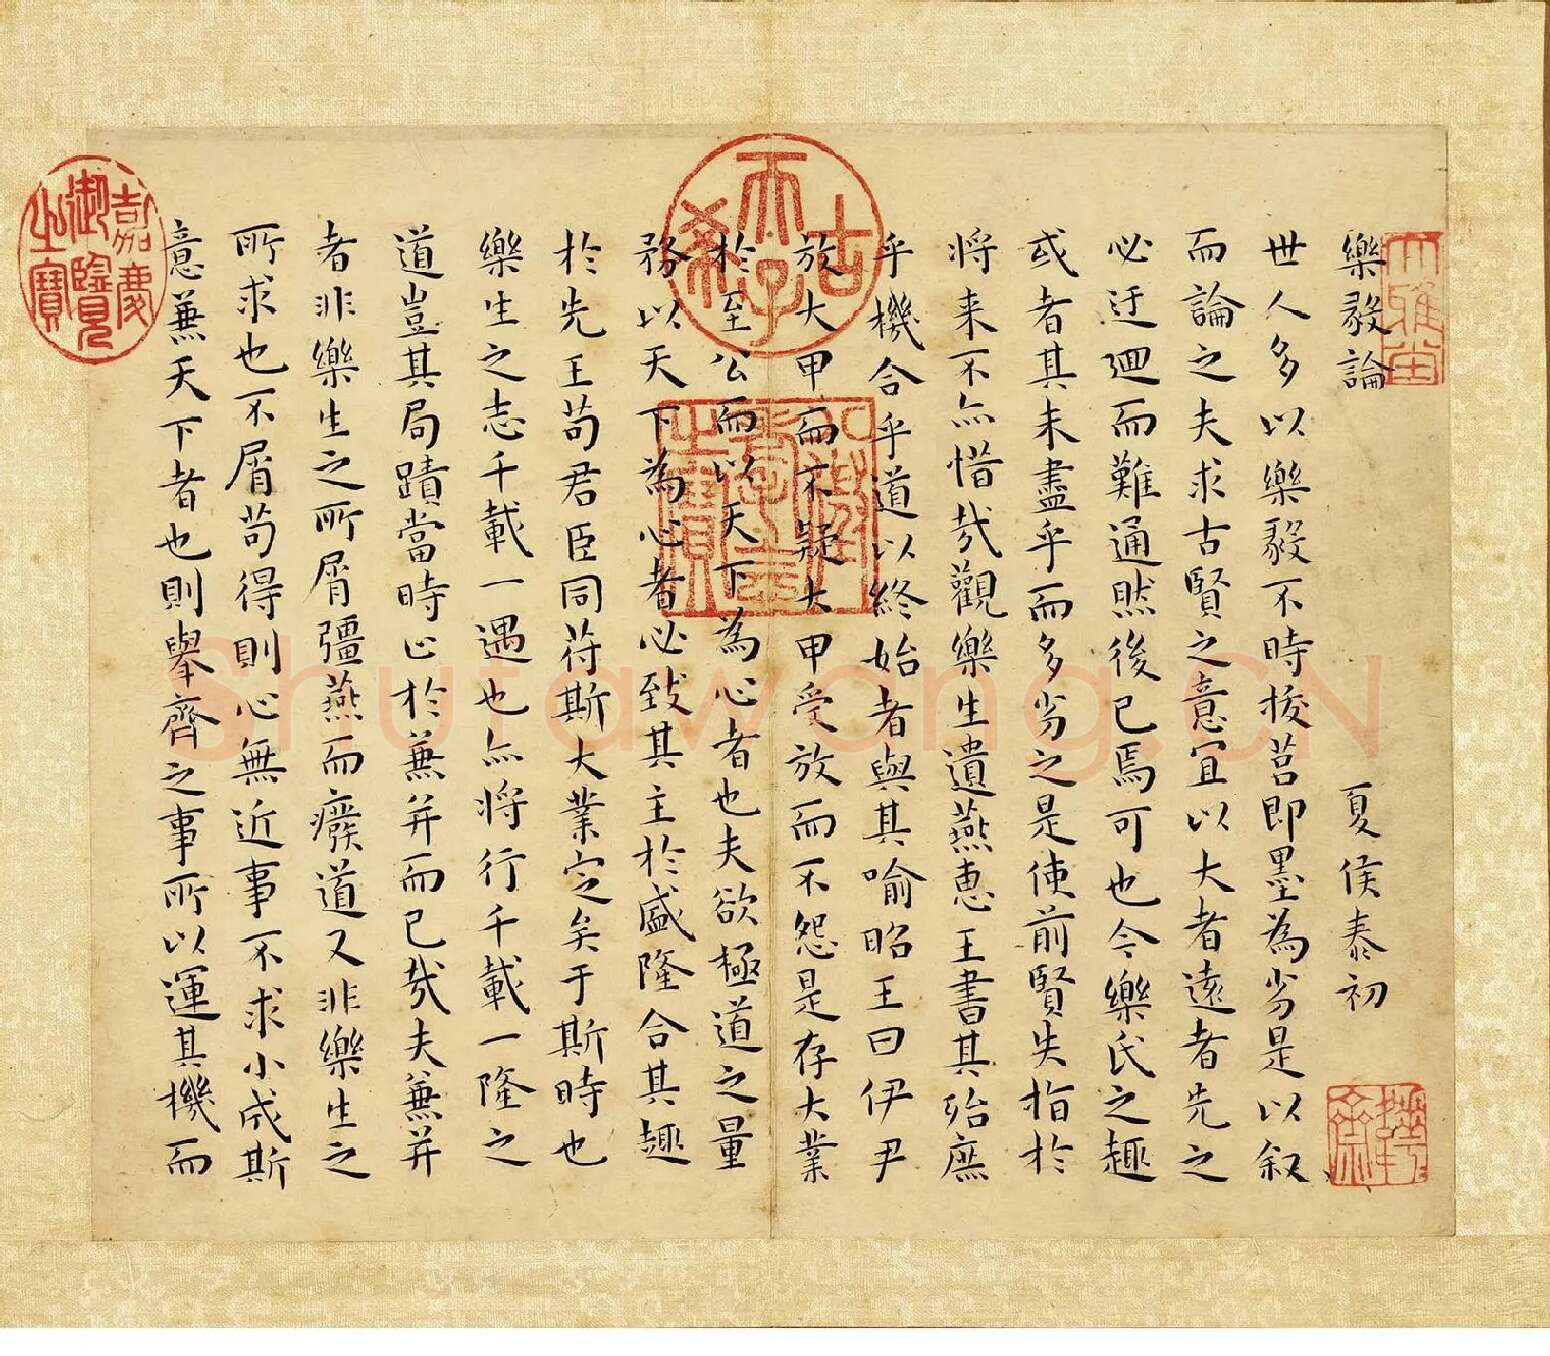 樂毅論 夏侯泰初
世人多以樂毅不時拔莒即墨為劣是以叙
而論之夫求古賢之意宜以大者遠者先之
必迂迴而難通然後已焉可也今樂氏之趣
或者其未盡乎而多劣之是使前賢失指於
將来不亦惜哉觀樂生遺燕惠王書其殆庶
乎機合乎道以終始者與其喻昭王曰伊尹
放大甲而不疑大甲受放而不怨是存大業
於至公而以天下為心者也夫欲極道之量
務以天下為心者必致其主於盛隆合其趣
於先王苟君臣同符斯大業定矣于斯時也
樂生之志千載一遇也亦將行千載一隆之
道豈其局蹟當時止於兼并而已哉夫兼并
者非樂生之所屑彊燕而廢道又非樂生之
所求也不屑苟得則心無近事不求小成斯
意兼天下者也則舉齊之事所以運其機而
大雅堂
古希天子
八徵耄念之寶
嘉慶御覽之寶
Shufawang.CN